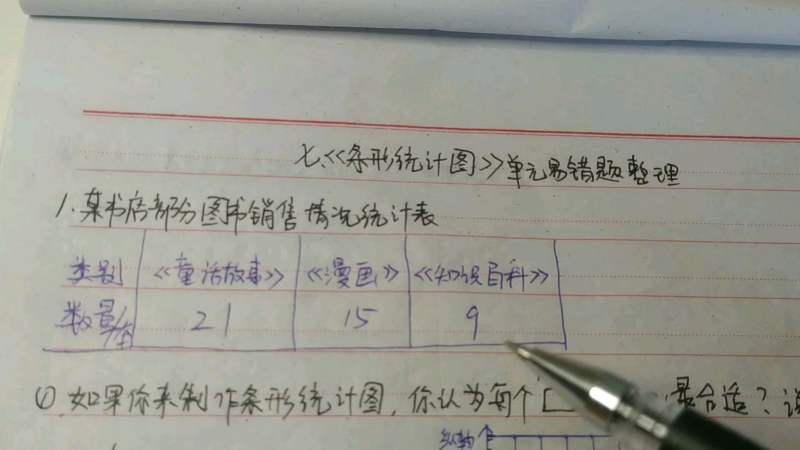 七、《条形统计图》单元易错题整理
1.某书店部分图书销售情况统计表
类别 《童话故事》 《漫画》 《知识百科》
数量/本 21 15 9
① 如果你来制作条形统计图,你认为每个 最合适?说
纵轴